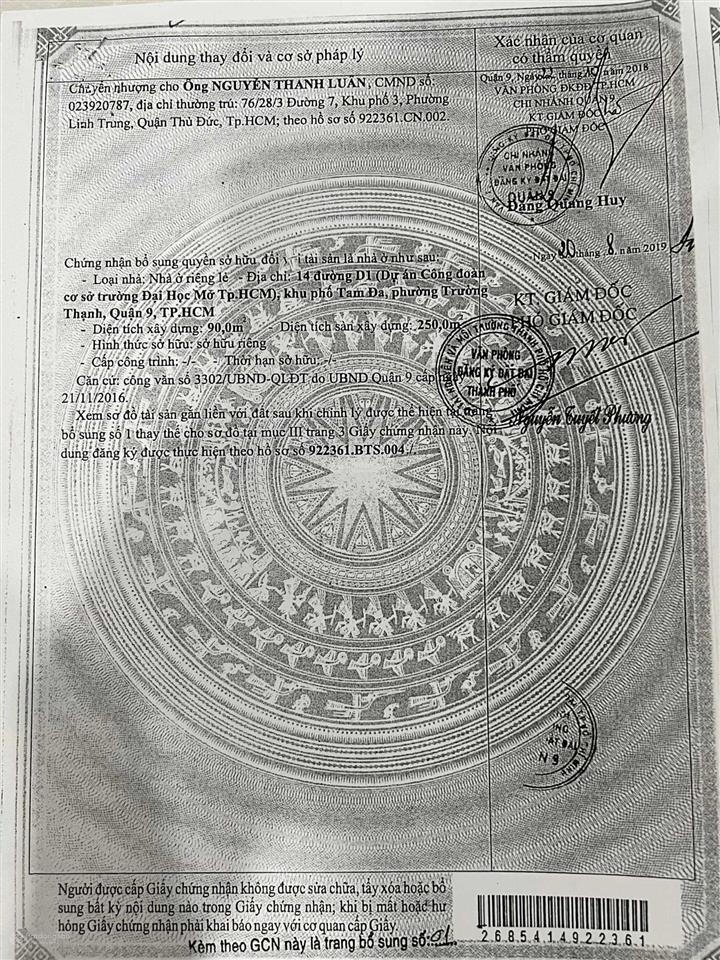 Nội dung thay đổi và cơ sở pháp lý
Xác nhận của cơ quan
có thẩm quyền
Chuyển nhượng cho Ông NGUYỄN THANH LUÂN, CMND số:
023920787, địa chỉ thường trú: 76/28/3 Đường 7, Khu phố 3, Phường
Linh Trung, Quận Thủ Đức, Tp.HCM; theo hồ sơ số 922361.CN.002.
Quận 9, Ngày tháng năm 2018
VĂN PHÒNG ĐKĐĐ TP.HCM
CHI NHÁNH QUẬN 9
KT.GIÁM ĐỐC
PHÓ GIÁM ĐỐC
CHI NHÁNH
VĂN PHÒNG
ĐĂNG KÝ ĐẤT ĐAI
QUẬN 9
Đặng Quang Huy
Chứng nhận bổ sung quyền sở hữu đối với tài sản là nhà ở như sau:
- Loại nhà: Nhà ở riêng lẻ - Địa chỉ: 14 đường D1 (Dự án Công đoàn
cơ sở trường Đại Học Mở Tp.HCM), khu phố Tam Đa, phường Trường
Thạnh, Quận 9, TP.HCM
- Diện tích xây dựng: 90,0m - Diện tích sàn xây dựng: 250,0m
- Hình thức sở hữu: sở hữu riêng
- Cấp công trình: -/- - Thời hạn sở hữu: -/-
Căn cứ: công văn số 3302/UBND-QLĐT do UBND Quận 9 cấp
21/11/2016.
Xem sơ đồ tài sản gắn liền với đất sau khi chỉnh lý được thể hiện tại trang
bổ sung số 1 thay thế cho sơ đồ tại mục III trang 3 Giấy chứng nhận này. Nội
dung đăng ký được thực hiện theo hồ sơ số 922361.BTS.004./.
Ngày 20 tháng 8 năm 2019
KT. GIÁM ĐỐC
PHÓ GIÁM ĐỐC
VĂN PHÒNG
ĐĂNG KÝ ĐẤT ĐAI
THÀNH PHỐ
Nguyễn Tuyết Phương
Người được cấp Giấy chứng nhận không được sửa chữa, tẩy xóa hoặc bổ
sung bất kỳ nội dung nào trong Giấy chứng nhận; khi bị mất hoặc hư
hỏng Giấy chứng nhận phải khai báo ngay với cơ quan cấp Giấy.
Kèm theo GCN này là trang bổ sung số: 01
268541492 2361